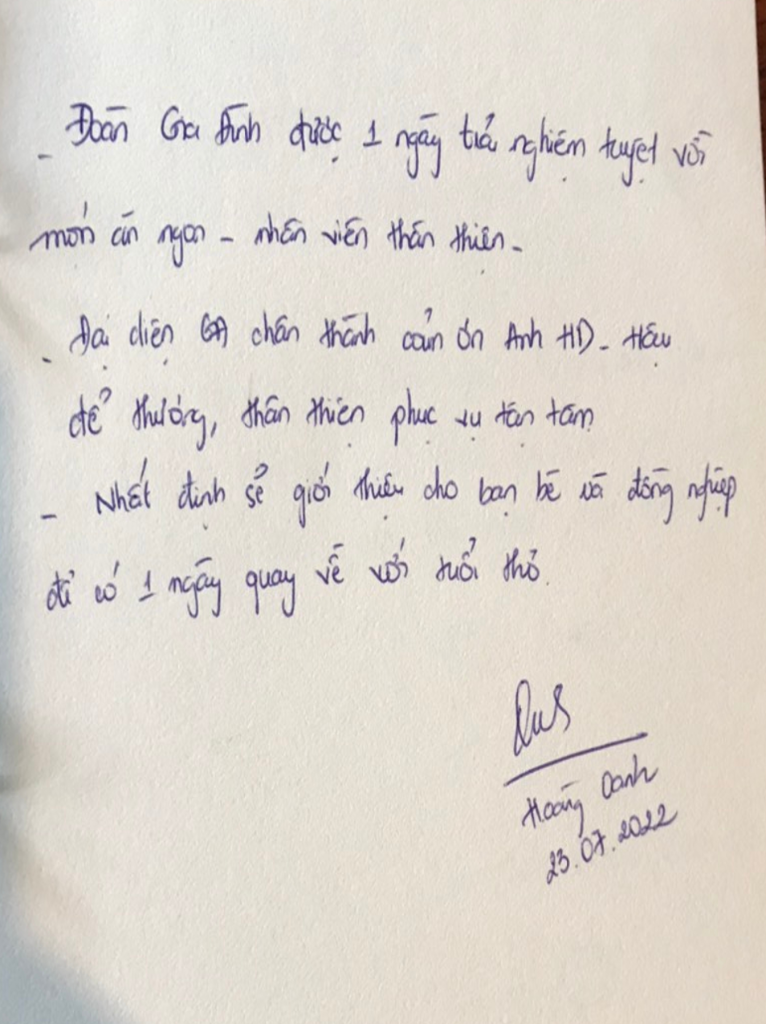 - Đoàn Gia Đình được 1 ngày trải nghiệm tuyệt với
món ăn ngon - nhân viên thân thiện -
- Đại diện GĐ chân thành cảm ơn Anh HD - Hậu
dể thương, thân thiện phục vụ tận tâm
- Nhất định sẽ giới thiệu cho bạn bè và đồng nghiệp
để có 1 ngày quay về với tuổi thơ.
Hoàng Oanh
23.07.2022